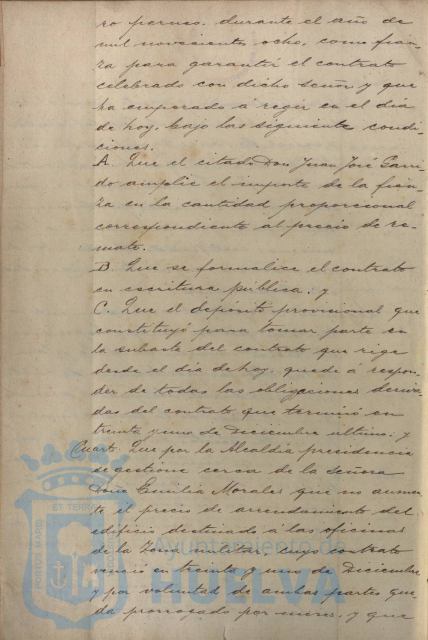 ro peruso, durante el año de
mil novecientos ocho, como fian-
za para garantir el contrato
celebrado con dicho señor y que
ha empezado á regir en el dia
de hoy, bajo las siguientes condi-
ciones.
A. Que el citado Don Juan José Garri-
do amplíe el importe de la fian-
za en la cantidad proporcional
correspondiente al precio de re-
mate.
B. Que se formalice el contrato
en escritura pública; y
C. Que el depósito provisional que
constituyó para tomar parte en
la subasta del contrato que rige
desde el dia de hoy, quede á respon-
der de todas las obligaciones deriva-
das del contrato que terminó en
treinta y uno de Diciembre último; y
Cuarto. Que por la Alcaldía presidencia
se gestione cerca de la Señora
Doña Emilia Morales que no aumen-
te el precio de arrendamiento del
edificio destinado á las oficinas
de la Zona militar, cuyo contrato
venció en treinta y uno de Diciembre
y por voluntad de ambas partes que-
da prorrogado por meses, y que
PORTUS MARIS ET TERRAE
Ayuntamiento de
HUELVA